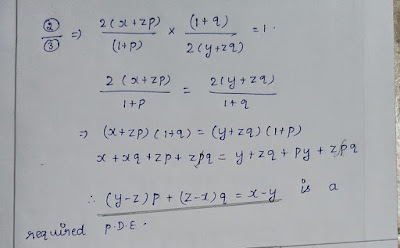 ②/③ ⇒ 2(x+zp)/(1+p) × (1+q)/2(y+zq) = 1.
2(x+zp)/1+p = 2(y+zq)/1+q
⇒ (x+zp)(1+q) = (y+zq)(1+p)
x+xq+zp+zpq = y+zq+py+zpq
∴ (y-z)p+(z-x)q = x-y is a
required P.D.E.